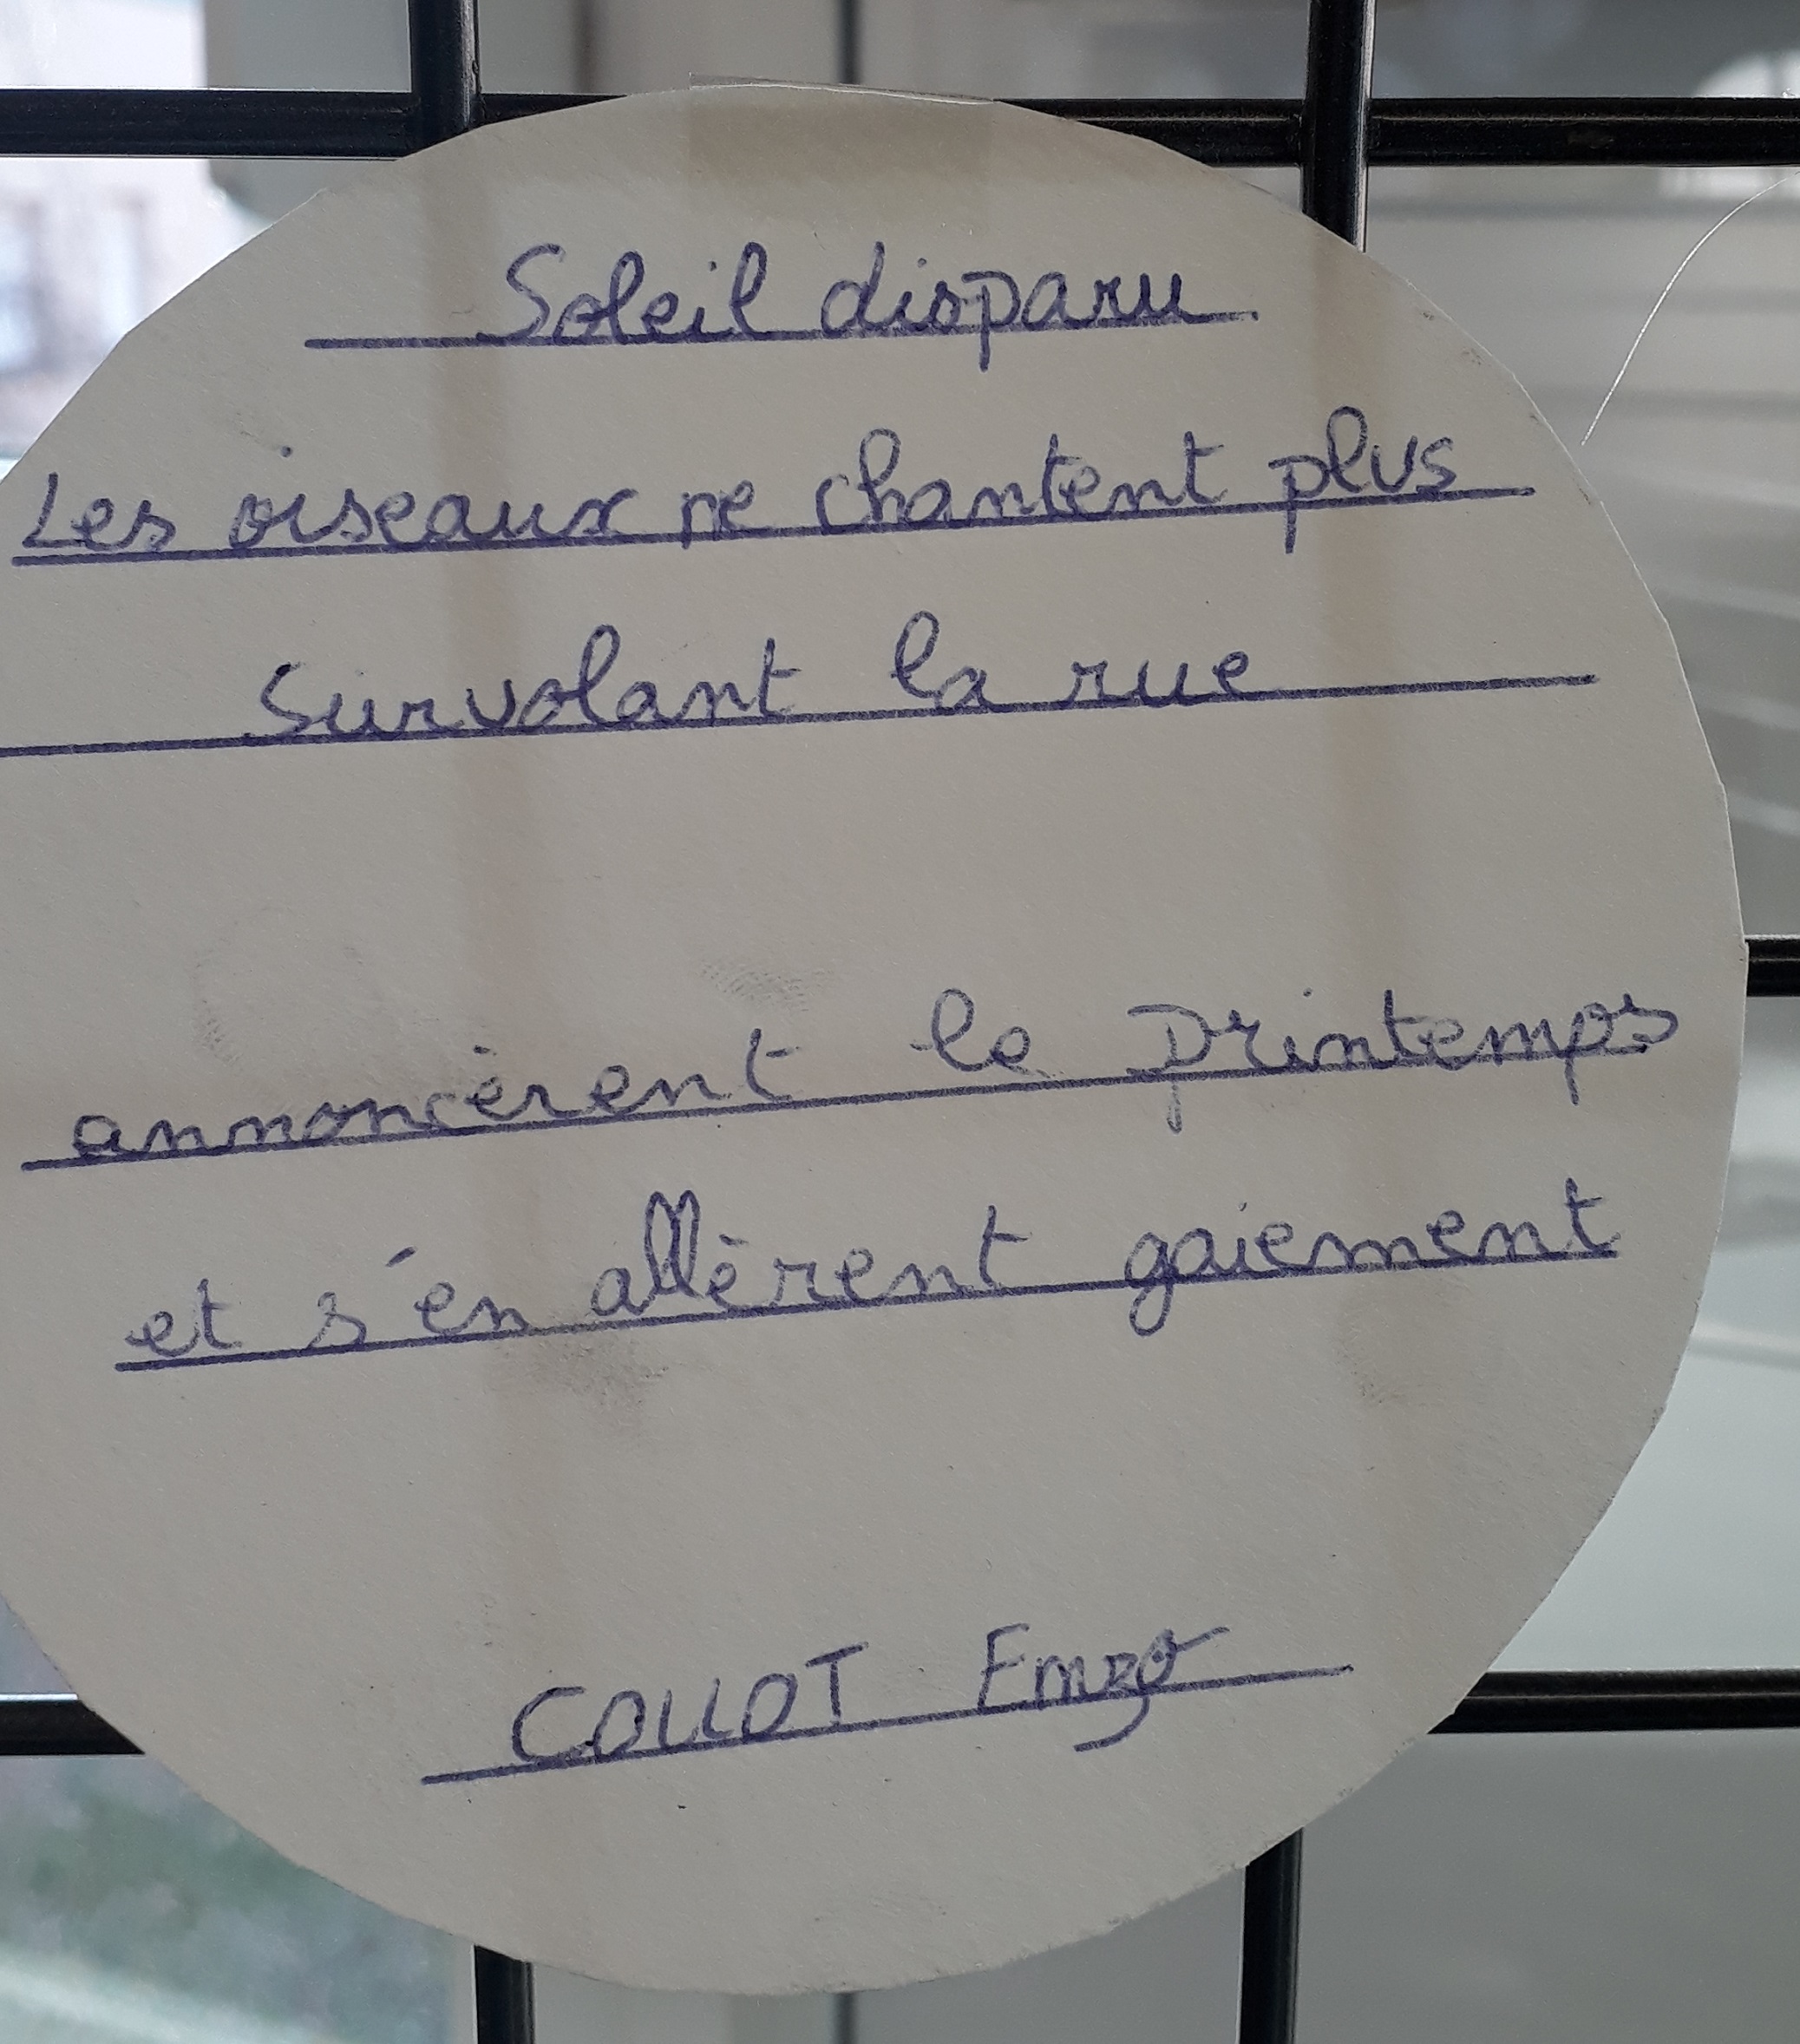 Soleil disparu
Les oiseaux ne chantent plus
Survolant la rue
annoncèrent le printemps
et s'en allèrent gaiement
COLLOT Enzo